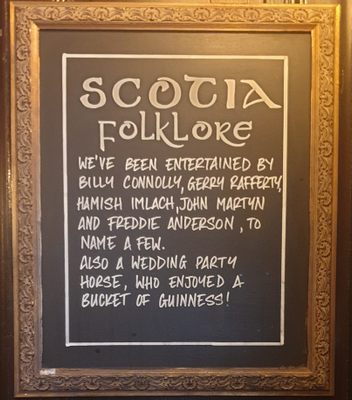 SCOTIA
FOLKLORE
WE'VE BEEN ENTERTAINED BY
BILLY CONNOLLY, GERRY RAFFERTY,
HAMISH IMLACH, JOHN MARTYN
AND FREDDIE ANDERSON, TO
NAME A FEW.
ALSO A WEDDING PARTY
HORSE, WHO ENJOYED A
BUCKET OF GUINNESS!